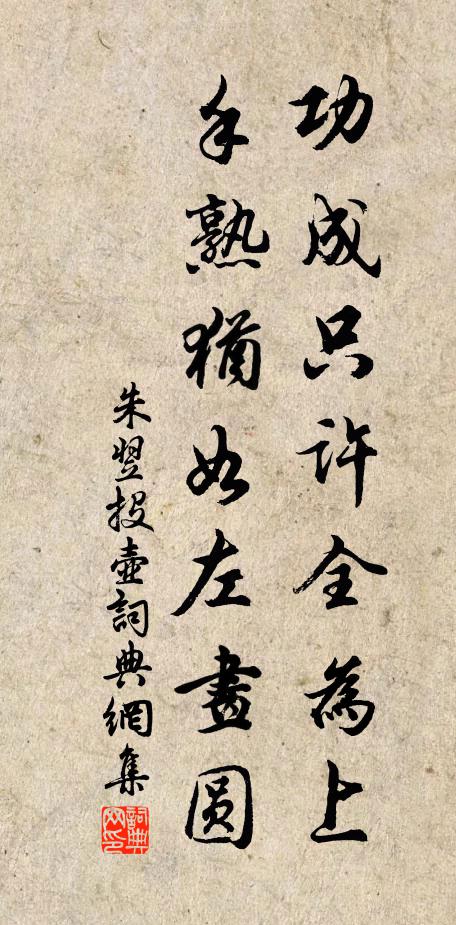 功成只許全為上
手熟猶如左畫圓
朱翌投壺詞典網集
詞典網印